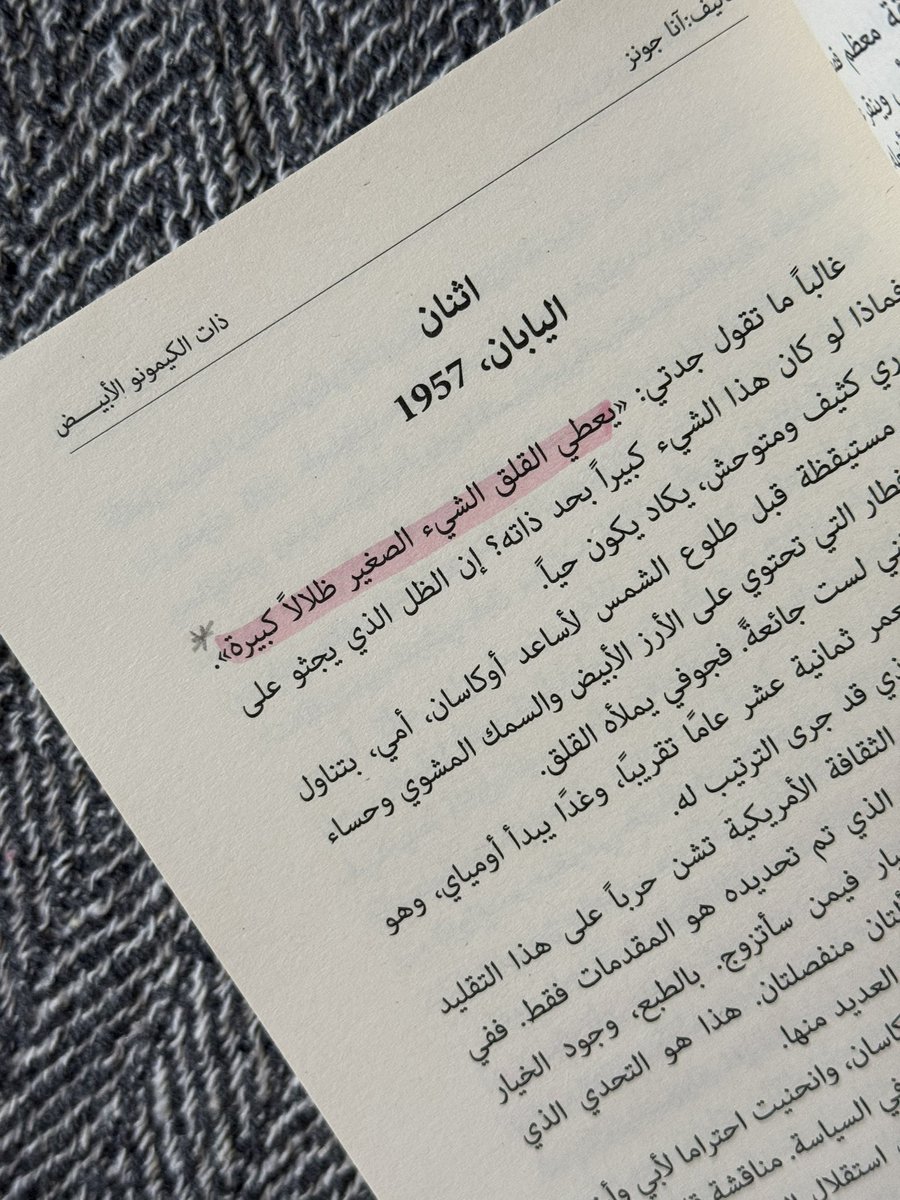 تأليف: آنا جونز
ذات الكيمونو الأبيــض
اثنان
اليابان، 1957
غالباً ما تقول جدتي: «يعطي القلق الشيء الصغير ظلالاً كبيرة».
فماذا لو كان هذا الشيء كبيراً بحد ذاته؟ إن الظل الذي يجثو على
كثيف ومتوحش، يكاد يكون حياً.
مستيقظة قبل طلوع الشمس لأساعد أوكاسان، أمي، بتناول
التي تحتوي على الأرز الأبيض والسمك المشوي وحساء
لست جائعةً. فجوفي يملأه القلق.
ثمانية عشر عامًا تقريباً، وغدًا يبدأ أومياي، وهو
قد جرى الترتيب له.
الثقافة الأمريكية تشن حرباً على هذا التقليد
الذي تم تحديده هو المقدمات فقط. ففي
فيمن سأتزوج. بالطبع، وجود الخيار
منفصلتان. هذا هو التحدي الذي
العديد منها.
وانحنيت احتراما لأبي
في السياسة. مناقشة
استقلال
معظم